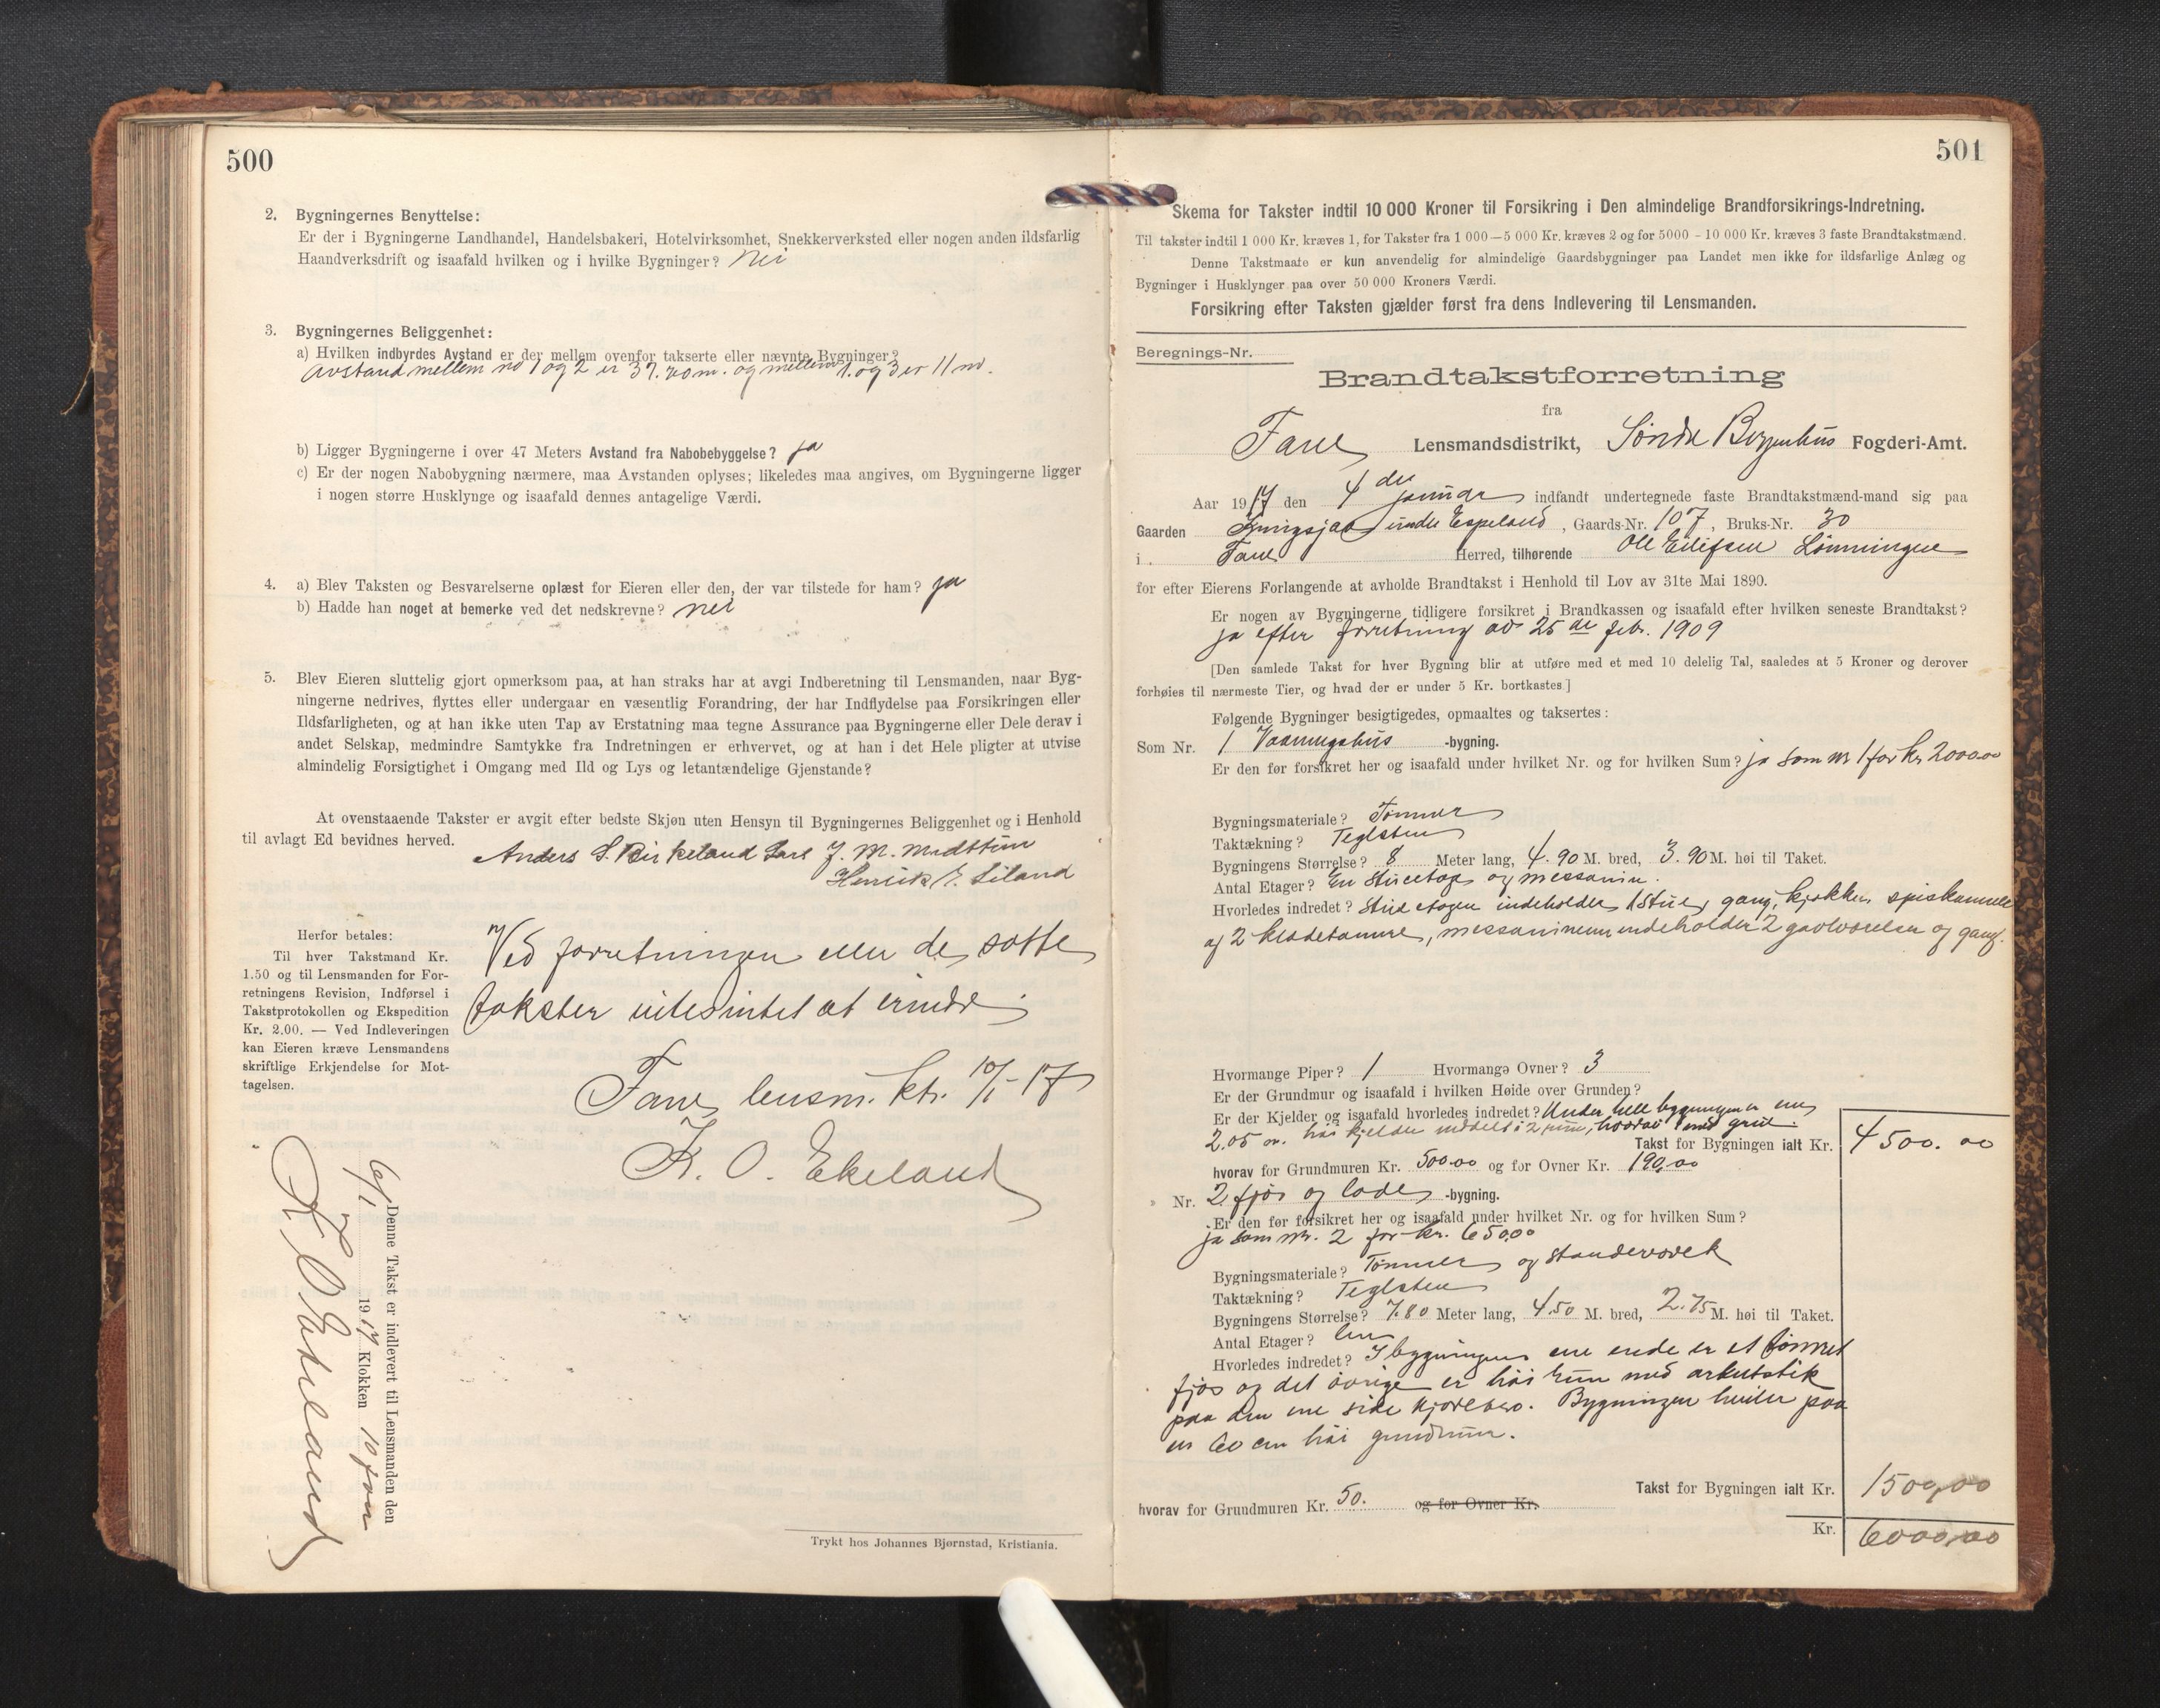 500
2. Bygningernes Benyttelse:
Er der i Bygningerne Landhandel, Handelsbakeri, Hotelvirksomhet, Snekkerverksted eller nogen anden ildsfarlig
Haandverksdrift og isaafald hvilken og i hvilke Bygninger? nei
3. Bygningernes Beliggenhet:
a) Hvilken indbyrdes Avstand er der mellem ovenfor takserte eller nævnte Bygninger?
Avstand mellem no 1 og 2 er 37.20 m. og mellem 1. og 3 er 11 m.
b) Ligger Bygningerne i over 47 Meters Avstand fra Nabobebyggelse? ja
c) Er der nogen Nabobygning nærmere, maa Avstanden oplyses; likeledes maa angives, om Bygningerne ligger
i nogen større Husklynge og isaafald dennes antagelige Værdi.
4. a) Blev Taksten og Besvarelserne oplæst for Eieren eller den, der var tilstede for ham? ja
b) Hadde han noget at bemerke ved det nedskrevne? nei
5. Blev Eieren sluttelig gjort opmerksom paa, at han straks har at avgi Indberetning til Lensmanden, naar Byg-
ningerne nedrives, flyttes eller undergaar en væsentlig Forandring, der har Indflydelse paa Forsikringen eller
Ildsfarligheten, og at han ikke uten Tap av Erstatning maa tegne Assurance paa Bygningerne eller Dele derav i
andet Selskap, medmindre Samtykke fra Indretningen er erhvervet, og at han i det Hele pligter at utvise
almindelig Forsigtighet i Omgang med Ild og Lys og letantændelige Gjenstande?
At ovenstaaende Takster er avgit efter bedste Skjøn uten Hensyn til Bygningernes Beliggenhet og i Henhold
til avlagt Ed bevidnes herved.
Anders S. Birkeland Lars J. M. Midttun
Henrik E. Liland
Herfor betales:
Til hver Takstmand Kr.
1.50 og til Lensmanden for For-
retningens Revision, Indførsel i
Takstprotokollen og Ekspedition
Kr. 2.00. — Ved Indleveringen
kan Eieren kræve Lensmandens
skriftlige Erkjendelse for Mot-
tagelsen.
Ved forretningen eller de satte
takster vites intet at erindre.
Fane lensm. ktr. 10/1-17
K. O. Ekeland
Denne Takst er indlevert til Lensmanden den
6/1 1917 Klokken 10 form
K. O. Ekeland
Trykt hos Johannes Bjørnstad, Kristiania.
501
Skema for Takster indtil 10 000 Kroner til Forsikring i Den almindelige Brandforsikrings-Indretning.
Til takster indtil 1 000 Kr. kræves 1, for Takster fra 1 000—5 000 Kr. kræves 2 og for 5000 - 10 000 Kr. kræves 3 faste Brandtakstmænd.
Denne Takstmaate er kun anvendelig for almindelige Gaardsbygninger paa Landet men ikke for ildsfarlige Anlæg og
Bygninger i Husklynger paa over 50 000 Kroners Værdi.
Forsikring efter Taksten gjælder først fra dens Indlevering til Lensmanden.
Beregnings-Nr.
Brandtakstforretning
fra
Fane Lensmandsdistrikt, Søndre Bergenhus Fogderi-Amt.
Aar 1917 den 4de januar indfandt undertegnede faste Brandtakstmænd-mand sig paa
Gaarden under Espeland, Gaards-Nr. 107, Bruks-Nr. 30
i Fane Herred, tilhørende Ole Eilifsen Lønningen
for efter Eierens Forlangende at avholde Brandtakst i Henhold til Lov av 31te Mai 1890.
Er nogen av Bygningerne tidligere forsikret i Brandkassen og isaafald efter hvilken seneste Brandtakst?
ja efter forretning av 25de febr. 1909
[Den samlede Takst for hver Bygning blir at utføre med et med 10 delelig Tal, saaledes at 5 Kroner og derover
forhøies til nærmeste Tier, og hvad der er under 5 Kr. bortkastes.]
Følgende Bygninger besigtigedes, opmaaltes og taksertes:
Som Nr. 1 Vaaningshus -bygning.
Er den før forsikret her og isaafald under hvilket Nr. og for hvilken Sum? ja som nr 1 for kr 2000.00
Bygningsmateriale? Tømmer
Taktækning? Teglsten
Bygningens Størrelse? 8 Meter lang, 4.90 M. bred, 3.90 M. høi til Taket.
Antal Etager? En stueetage og messanin.
Hvorledes indredet? Stueetagen indeholder 1 stue, gang, kjøkken, spiskammer
og 2 klædekamre, messaninen indeholder 2 gavlværelser og gang.
Hvormange Piper? 1 Hvormange Ovner? 3
Er der Grundmur og isaafald i hvilken Høide over Grunden?
Er der Kjelder og isaafald hvorledes indredet? Under hele bygningen er en
2.05 m. høi kjelder inddelt i 2 rum, hvorav 1 med grue.
Takst for Bygningen ialt Kr. 4500.00
hvorav for Grundmuren Kr. 500.00 og for Ovner Kr. 190.00
Nr. 2 fjøs og lade -bygning.
Er den før forsikret her og isaafald under hvilket Nr. og for hvilken Sum?
ja som nr. 2 for kr. 650.00
Bygningsmateriale? Tømmer og standerverk
Taktækning? Teglsten
Bygningens Størrelse? 7.80 Meter lang, 4.50 M. bred, 2.75 M. høi til Taket.
Antal Etager? En
Hvorledes indredet? I bygningens ene ende er et tømret
fjøs og det øvrige er høi rum med
paa den ene side kjørebro. Bygningen hviler paa
en 60 cm høi grundmur.
Takst for Bygningen ialt Kr. 1500.00
hvorav for Grundmuren Kr. 50. og for Ovner Kr.
Kr. 6000.00